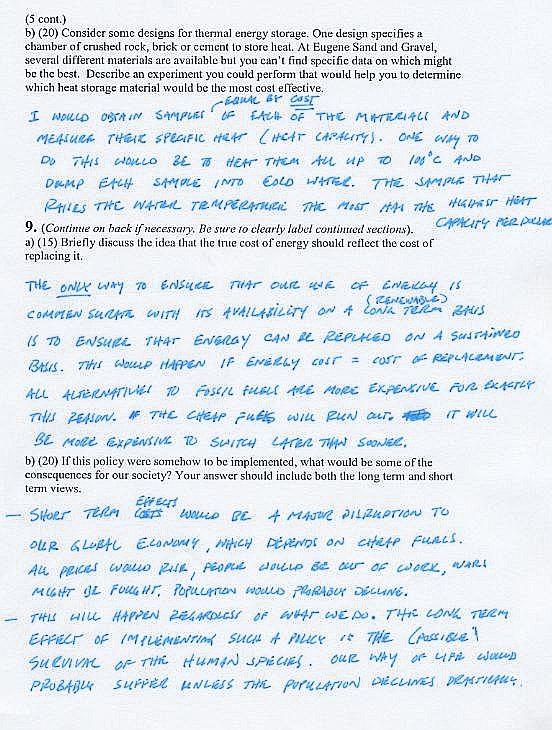 (5 cont.)
b) (20) Consider some designs for thermal energy storage. One design specifies a
chamber of crushed rock, brick or cement to store heat. At Eugene Sand and Gravel,
several different materials are available but you can't find specific data on which might
be the best. Describe an experiment you could perform that would help you to determine
which heat storage material would be the most cost effective.
EQUAL BY COST
I WOULD OBTAIN SAMPLES OF EACH OF THE MATERIALS AND
MEASURE THEIR SPECIFIC HEAT (HEAT CAPACITY). ONE WAY TO
DO THIS WOULD BE TO HEAT THEM ALL UP TO 100°C AND
DUMP EACH SAMPLE INTO COLD WATER. THE SAMPLE THAT
RAISES THE WATER TEMPERATURE THE MOST HAS THE HIGHEST HEAT
CAPACITY PER DOLLAR
9. (Continue on back if necessary. Be sure to clearly label continued sections).
a) (15) Briefly discuss the idea that the true cost of energy should reflect the cost of
replacing it.
THE ONLY WAY TO ENSURE THAT OUR USE OF ENERGY IS
(RENEWABLE)
COMMENSURATE WITH ITS AVAILABILITY ON A LONG TERM BASIS
IS TO ENSURE THAT ENERGY CAN BE REPLACED ON A SUSTAINED
BASIS. THIS WOULD HAPPEN IF ENERGY COST = COST OF REPLACEMENT.
ALL ALTERNATIVES TO FOSSIL FUELS ARE MORE EXPENSIVE FOR EXACTLY
THIS REASON. IF THE CHEAP FUELS WILL RUN OUT. IT WILL
BE MORE EXPENSIVE TO SWITCH LATER THAN SOONER.
b) (20) If this policy were somehow to be implemented, what would be some of the
consequences for our society? Your answer should include both the long term and short
term views.
EFFECTS
— SHORT TERM COSTS WOULD BE A MAJOR DISRUPTION TO
OUR GLOBAL ECONOMY, WHICH DEPENDS ON CHEAP FUELS.
ALL PRICES WOULD RISE, PEOPLE WOULD BE OUT OF WORK, WARS
MIGHT BE FOUGHT. POPULATION WOULD PROBABLY DECLINE.
— THIS WILL HAPPEN REGARDLESS OF WHAT WE DO. THE LONG TERM
EFFECT OF IMPLEMENTING SUCH A POLICY IS THE (POSSIBLE)
SURVIVAL OF THE HUMAN SPECIES. OUR WAY OF LIFE WOULD
PROBABLY SUFFER UNLESS THE POPULATION DECLINES DRASTICALLY.